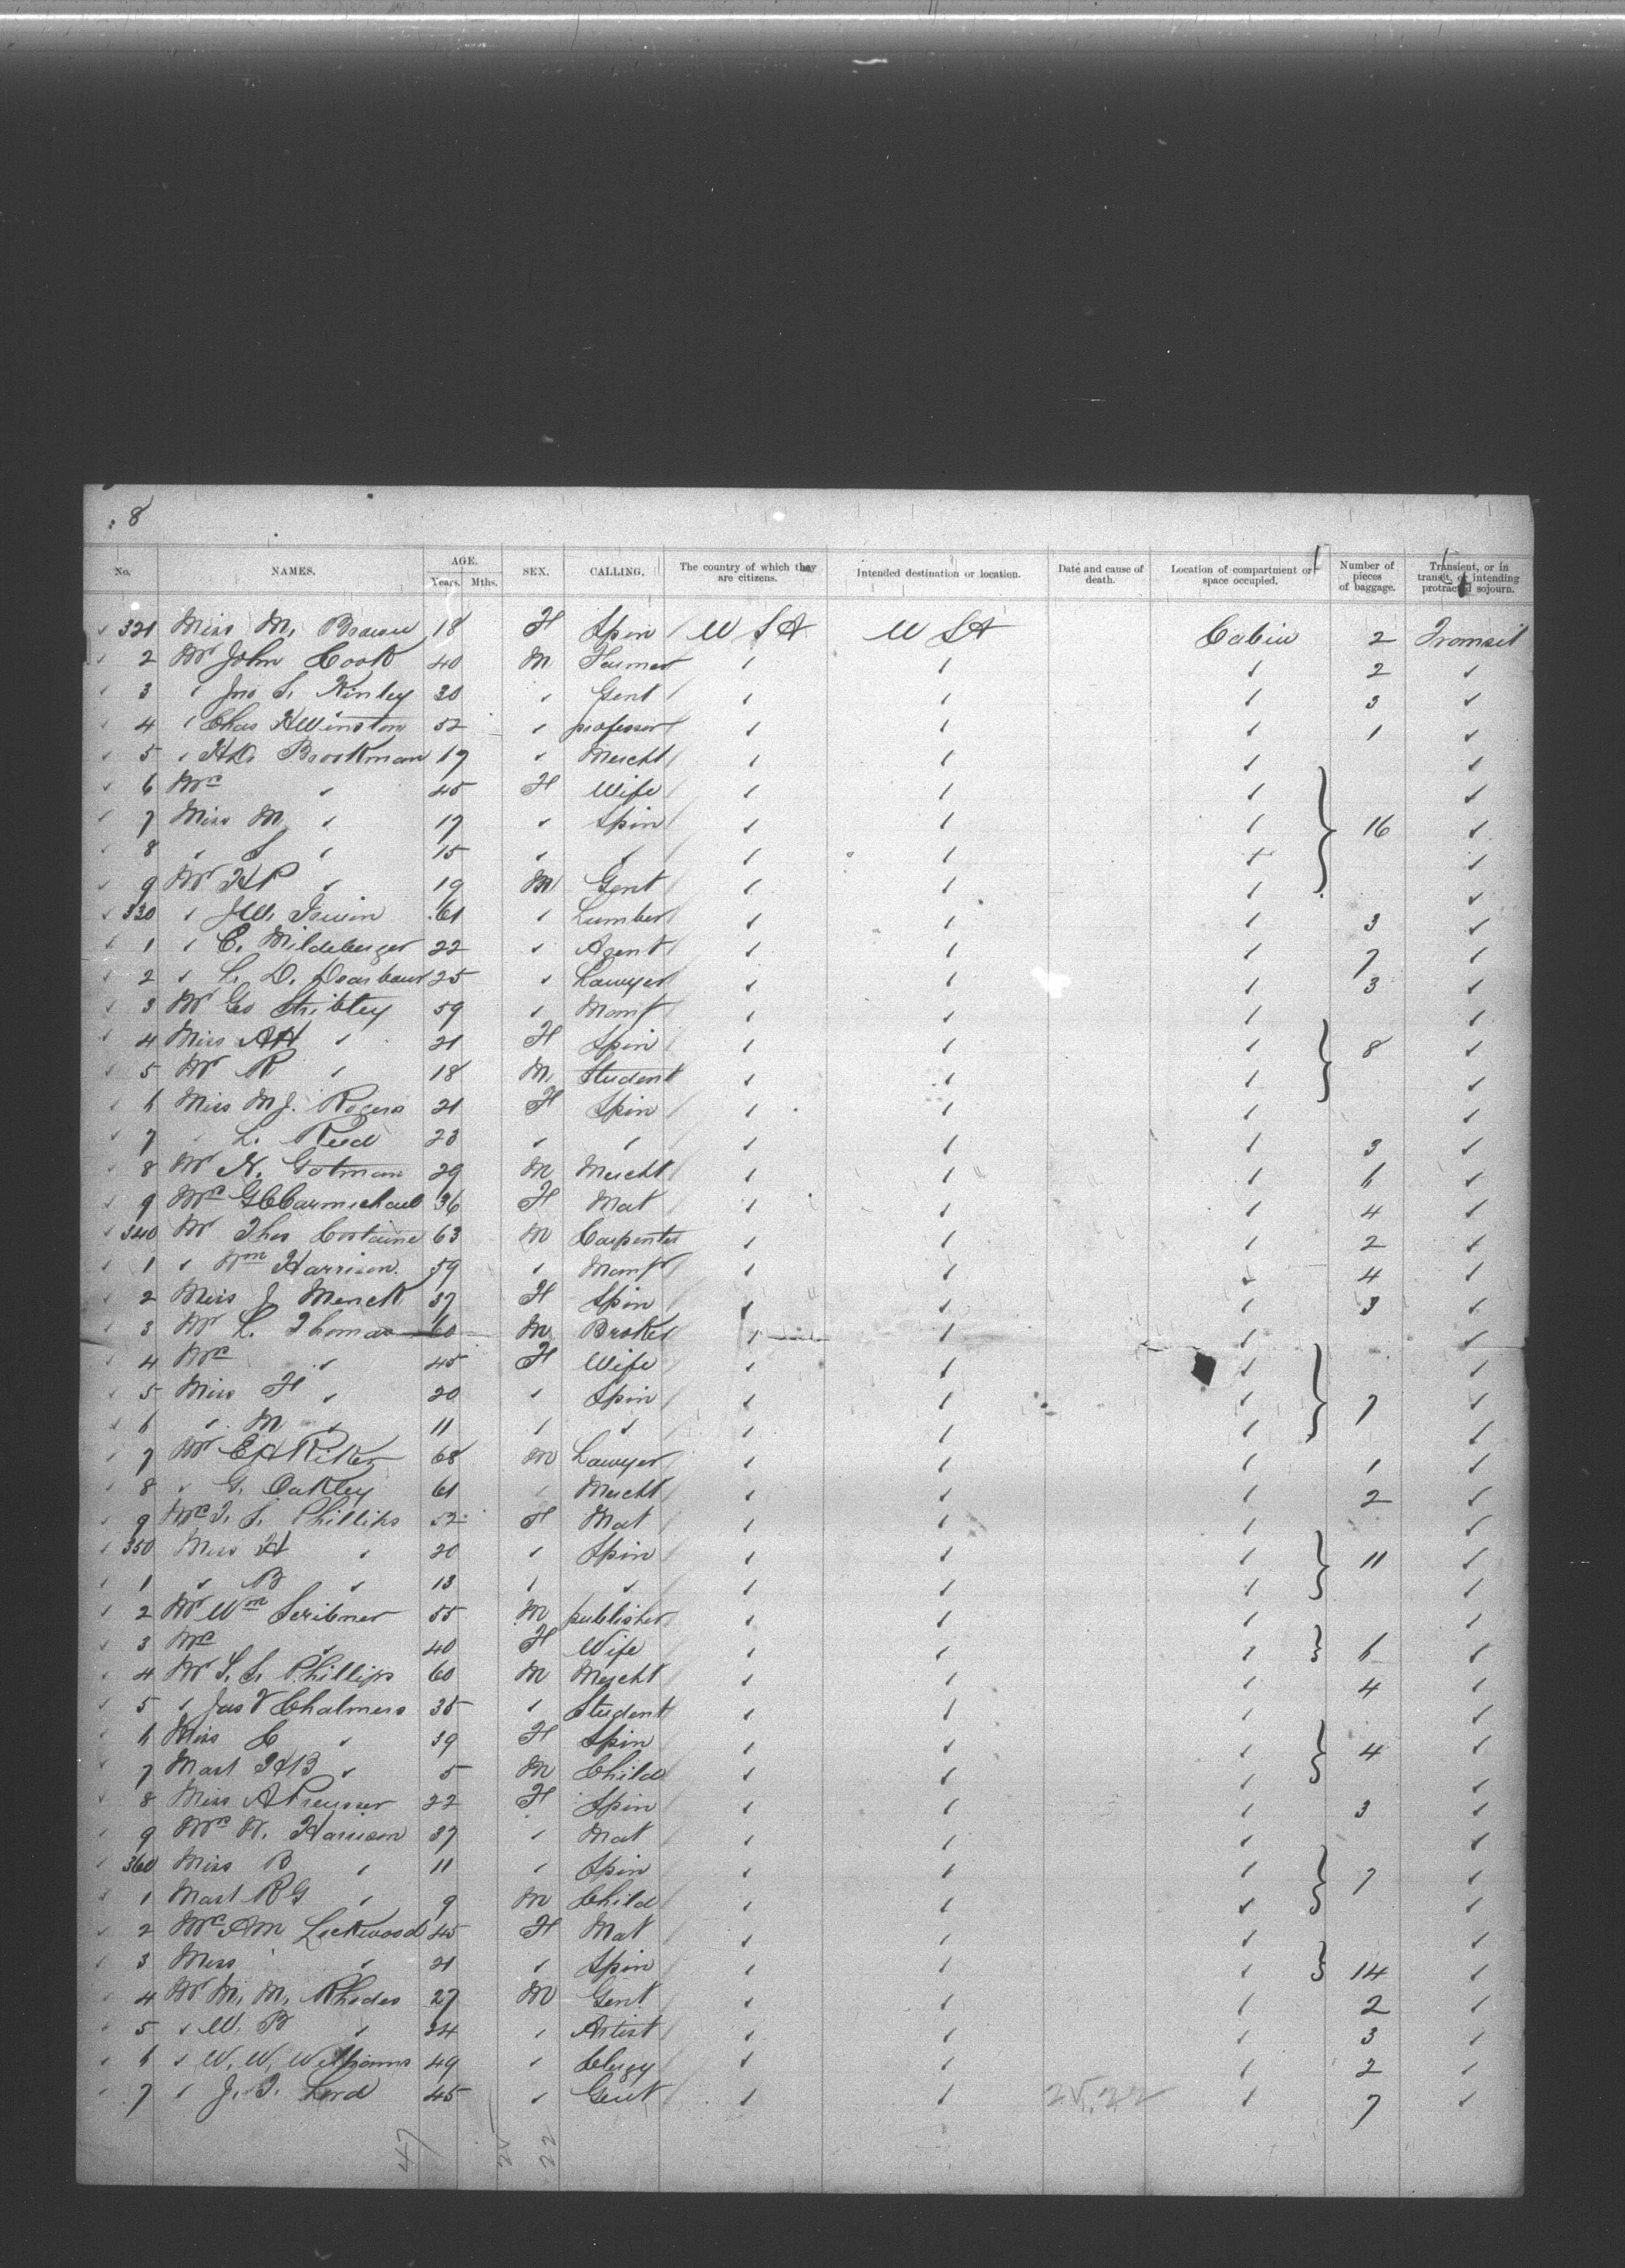 8
No. NAMES. AGE. Years. Mths. SEX. CALLING. The country of which they are citizens. Intended destination or location. Date and cause of death. Location of compartment or space occupied. Number of pieces of baggage. Transient, or in transit, or intending protracted sojourn.
✓ 321 Miss M. Brown 18 F Spin U S A U S A Cabin 2 Transit
✓ 2 Mr John Cook 40 M Farmer 〃 〃 〃 2 〃
✓ 3 〃 Jno S. Kinley 30 〃 Gent 〃 〃 〃 3 〃
✓ 4 〃 Chas H Winston 52 〃 professor 〃 〃 〃 1 〃
✓ 5 〃 H.D. Brookman 19 〃 Mercht 〃 〃 〃 〃
✓ 6 Mrs 〃 45 F Wife 〃 〃 〃 〃
✓ 7 Miss M 〃 17 〃 Spin 〃 〃 〃 16 〃
✓ 8 〃 S 〃 15 〃 〃 〃 〃 〃 〃
✓ 9 Mr H P 〃 19 M Gent 〃 〃 〃 〃
✓ 330 〃 J.W. Irwin 61 〃 Lumber 〃 〃 〃 3 〃
✓ 1 〃 C. Mildeberger 22 〃 Agent 〃 〃 〃 7 〃
✓ 2 〃 L. D. 25 〃 Lawyer 〃 〃 〃 3 〃
✓ 3 Mr Geo Stribley 59 〃 Manfr 〃 〃 〃 〃
✓ 4 Miss A H 〃 21 F Spin 〃 〃 〃 8 〃
✓ 5 Mr R 〃 18 M Student 〃 〃 〃 〃
✓ 6 Miss M J. Rogers 21 F Spin 〃 〃 〃 〃
✓ 7 〃 L. Reed 23 〃 〃 〃 〃 〃 3 〃
✓ 8 Mr N. Gotman 29 M Mercht 〃 〃 〃 6 〃
✓ 9 Mrs G C Carmichael 36 F Mat 〃 〃 〃 4 〃
✓ 340 Mr Thos 63 M Carpenter 〃 〃 〃 2 〃
✓ 1 〃 Wm Harrison. 59 〃 Manfr 〃 〃 〃 4 〃
✓ 2 Miss J Menck 37 F Spin 〃 〃 〃 3 〃
✓ 3 Mr L. Thomas 60 M Broker 〃 〃 〃 〃
✓ 4 Mrs 〃 45 F Wife 〃 〃 〃 〃
✓ 5 Miss F 〃 20 〃 Spin 〃 〃 〃 7 〃
✓ 6 〃 M 〃 11 〃 〃 〃 〃 〃 〃
✓ 7 Mr E A Riker 68 M Lawyer 〃 〃 〃 1 〃
✓ 8 〃 G. Oakley 61 〃 Mercht 〃 〃 〃 2 〃
✓ 9 Mrs I. S. Phillips 52 F Mat 〃 〃 〃 〃
✓ 350 Miss H 〃 20 〃 Spin 〃 〃 〃 11 〃
✓ 1 〃 B 〃 13 〃 〃 〃 〃 〃 〃
✓ 2 Mr Wm Scribner 55 M publisher 〃 〃 〃 〃
✓ 3 Mrs 〃 40 F Wife 〃 〃 〃 6 〃
✓ 4 Mr S. S. Phillips 60 M Mercht 〃 〃 〃 4 〃
✓ 5 〃 Jas V Chalmers 35 〃 Student 〃 〃 〃 〃
✓ 6 Miss C 〃 39 F Spin 〃 〃 〃 4 〃
✓ 7 Mast T H B 〃 5 M Child 〃 〃 〃 〃
✓ 8 Miss A Preusser 22 F Spin 〃 〃 〃 3 〃
✓ 9 Mrs W. Harrison 37 〃 Mat 〃 〃 〃 〃
✓ 360 Miss B 〃 11 〃 Spin 〃 〃 〃 7 〃
✓ 1 Mast R G 〃 9 M Child 〃 〃 〃 〃
✓ 2 Mrs A M Lockwood 45 F Mat 〃 〃 〃 〃
✓ 3 Miss 〃 21 〃 Spin 〃 〃 〃 14 〃
✓ 4 Mr M. M. Rhodes 27 M Gent 〃 〃 〃 2 〃
✓ 5 〃 W. B 〃 24 〃 Artist 〃 〃 〃 3 〃
✓ 6 〃 W. W. Williams 49 〃 Clergy 〃 〃 〃 2 〃
✓ 7 〃 J. T. Lord 45 〃 Gent 〃 〃 〃 7 〃
47 25 22